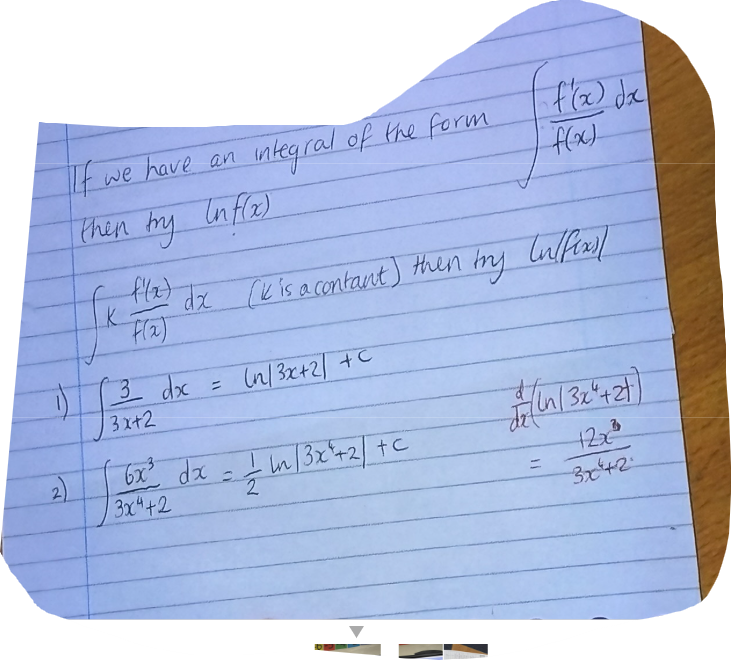 If we have an integral of the form ∫ f'(x)/f(x) dx
then try ln f(x)
∫ K f'(x)/f(x) dx (K is a contant) then try ln|f(x)|
1) ∫ 3/(3x+2) dx = ln|3x+2| + c
2) ∫ 6x³/(3x⁴+2) dx = 1/2 ln|3x⁴+2| + c
d/dx (ln|3x⁴+2|)
= 12x³/(3x⁴+2)